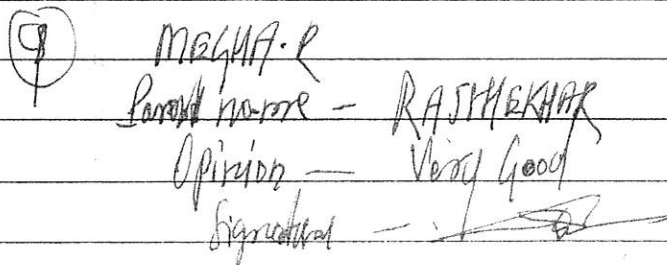 9 MEGHA.R
Parent name - RAJSHEKHAR
Opinion - Very Good
Signature -